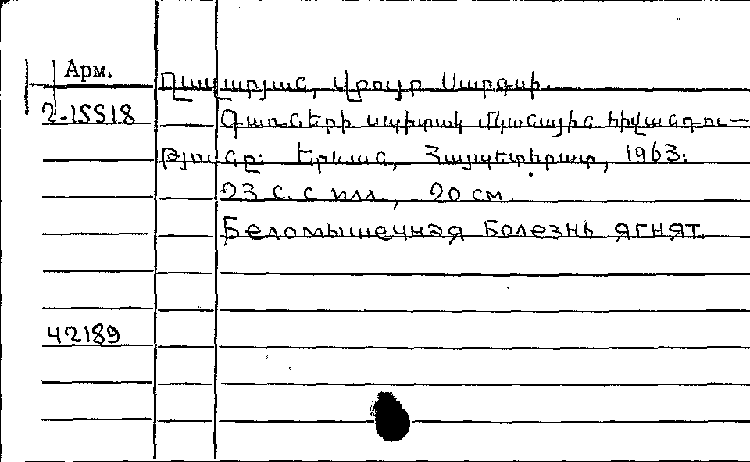 Арм.
Ղազարյան, Վրույր Սարգսի.
2-15518
Գառների սպիտակ մկանային հիվանդու-
թյունը: Երևան, Հայպետհրատ, 1963:
23 с. с илл, 20 см.
Беломышечная болезнь ягнят.
42189